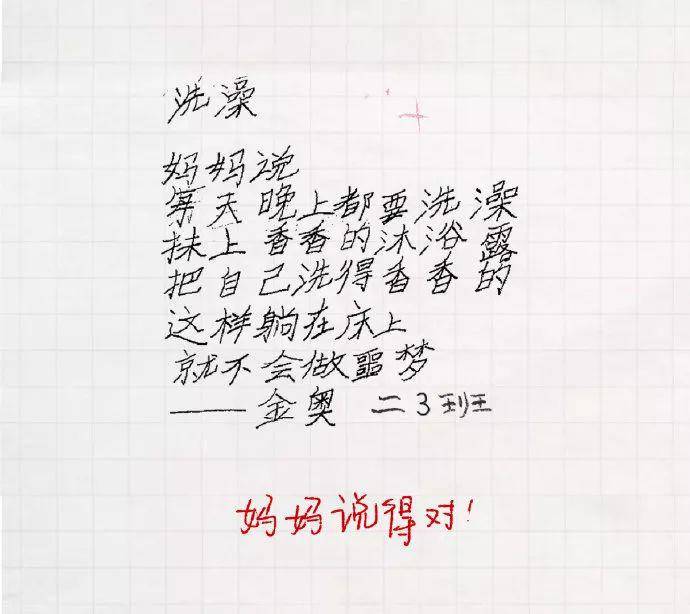 洗澡
妈妈说
每天晚上都要洗澡
抹上香香的沐浴露
把自己洗得香香的
这样躺在床上
就不会做噩梦
——金奥 二3班
妈妈说得对!